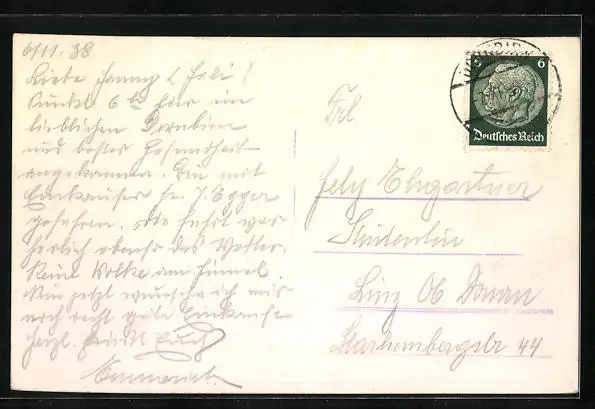 6/11. 38
Liebe Fanny & Feli!
Punkt 6 h hier im
lieblichen Dornbirn
und bester Gesundheit
angekommen. Bin mit
Einkäufer Hr. J. Egger
gefahren. Die Fahrt war
herlich ebenso das Wetter.
Keine Wolke am Himmel.
Nun jetzt wünsche ich mir
noch recht gute Einkäufe
herzl. grüßt Euch
Emmerich
6 6
Deutsches Reich
Frl
Fely Ehgartner
Studentin
Linz Ob Donau
Starhembergstr 44